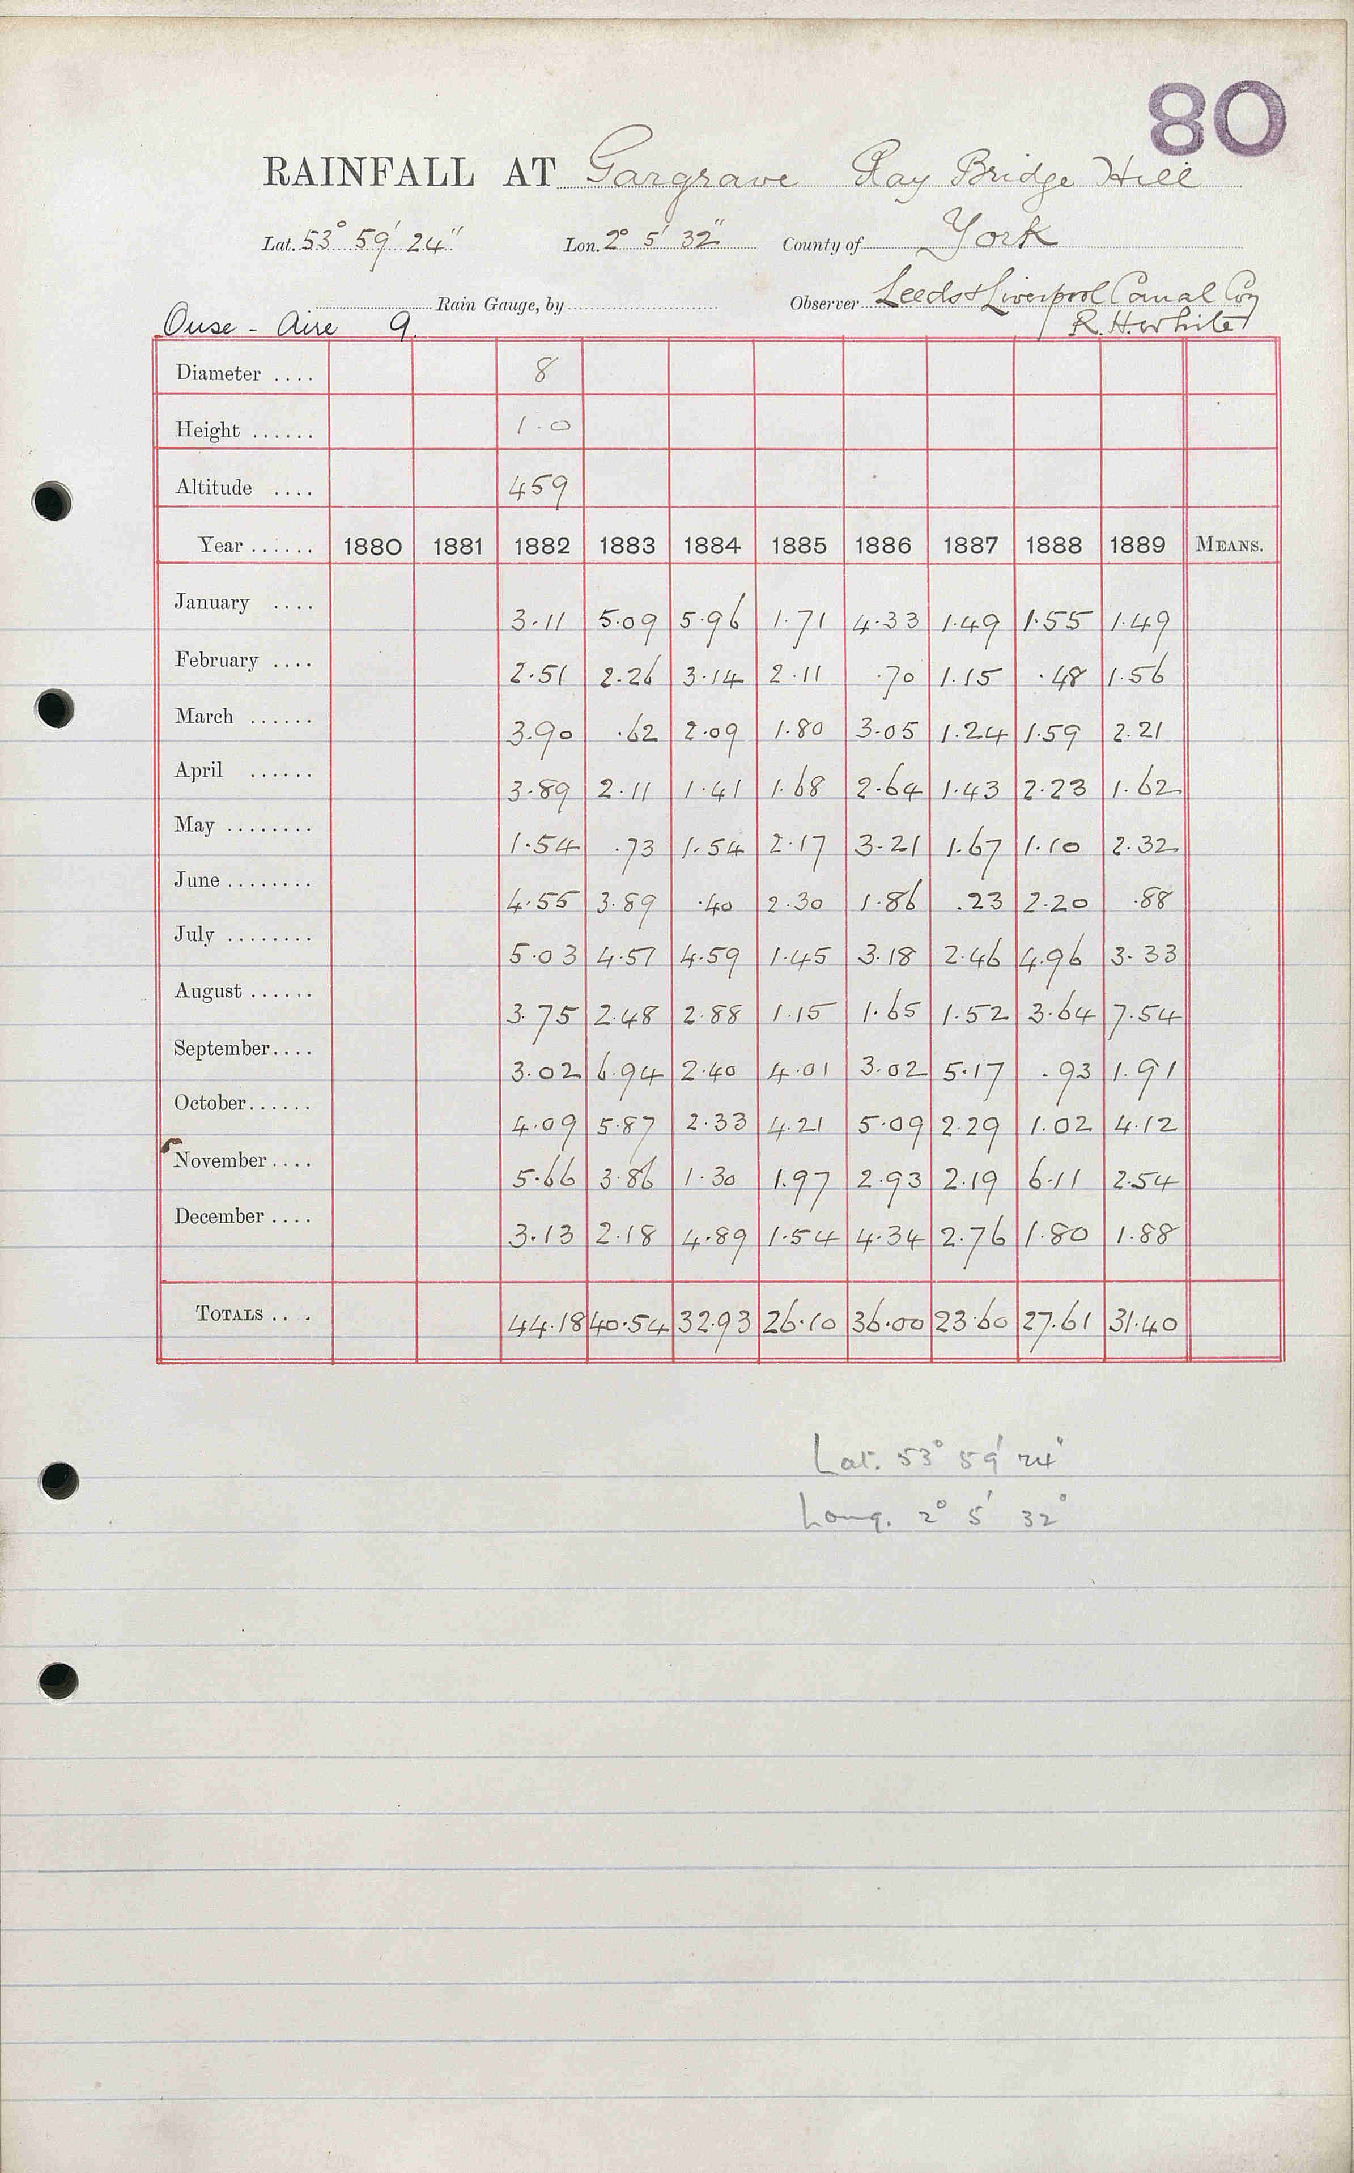 80
RAINFALL AT Gargrave Ray Bridge Hill
Lat. 53° 59' 24" Lon. 2° 5' 32" County of York
Rain Gauge, by Observer Leeds & Liverpool Canal Coy
Ouse - Aire 9. R. H. White
Diameter .... 8
Height ...... 1.0
Altitude .... 459
Year ...... 1880 1881 1882 1883 1884 1885 1886 1887 1888 1889 MEANS.
January .... 3.11 5.09 5.96 1.71 4.33 1.49 1.55 1.49
February .... 2.51 2.26 3.14 2.11 .70 1.15 .48 1.56
March ...... 3.90 .62 2.09 1.80 3.05 1.24 1.59 2.21
April ...... 3.89 2.11 1.41 1.68 2.64 1.43 2.23 1.62
May ........ 1.54 .73 1.54 2.17 3.21 1.67 1.10 2.32
June ........ 4.55 3.89 .40 2.30 1.86 .23 2.20 .88
July ........ 5.03 4.51 4.59 1.45 3.18 2.46 4.96 3.33
August ...... 3.75 2.48 2.88 1.15 1.65 1.52 3.64 7.54
September.... 3.02 6.94 2.40 4.01 3.02 5.17 .93 1.91
October...... 4.09 5.87 2.33 4.21 5.09 2.29 1.02 4.12
November.... 5.66 3.86 1.30 1.97 2.93 2.19 6.11 2.54
December.... 3.13 2.18 4.89 1.54 4.34 2.76 1.80 1.88
TOTALS .... 44.18 40.54 32.93 26.10 36.00 23.60 27.61 31.40
Lat. 53° 59' 24"
Long. 2° 5' 32°